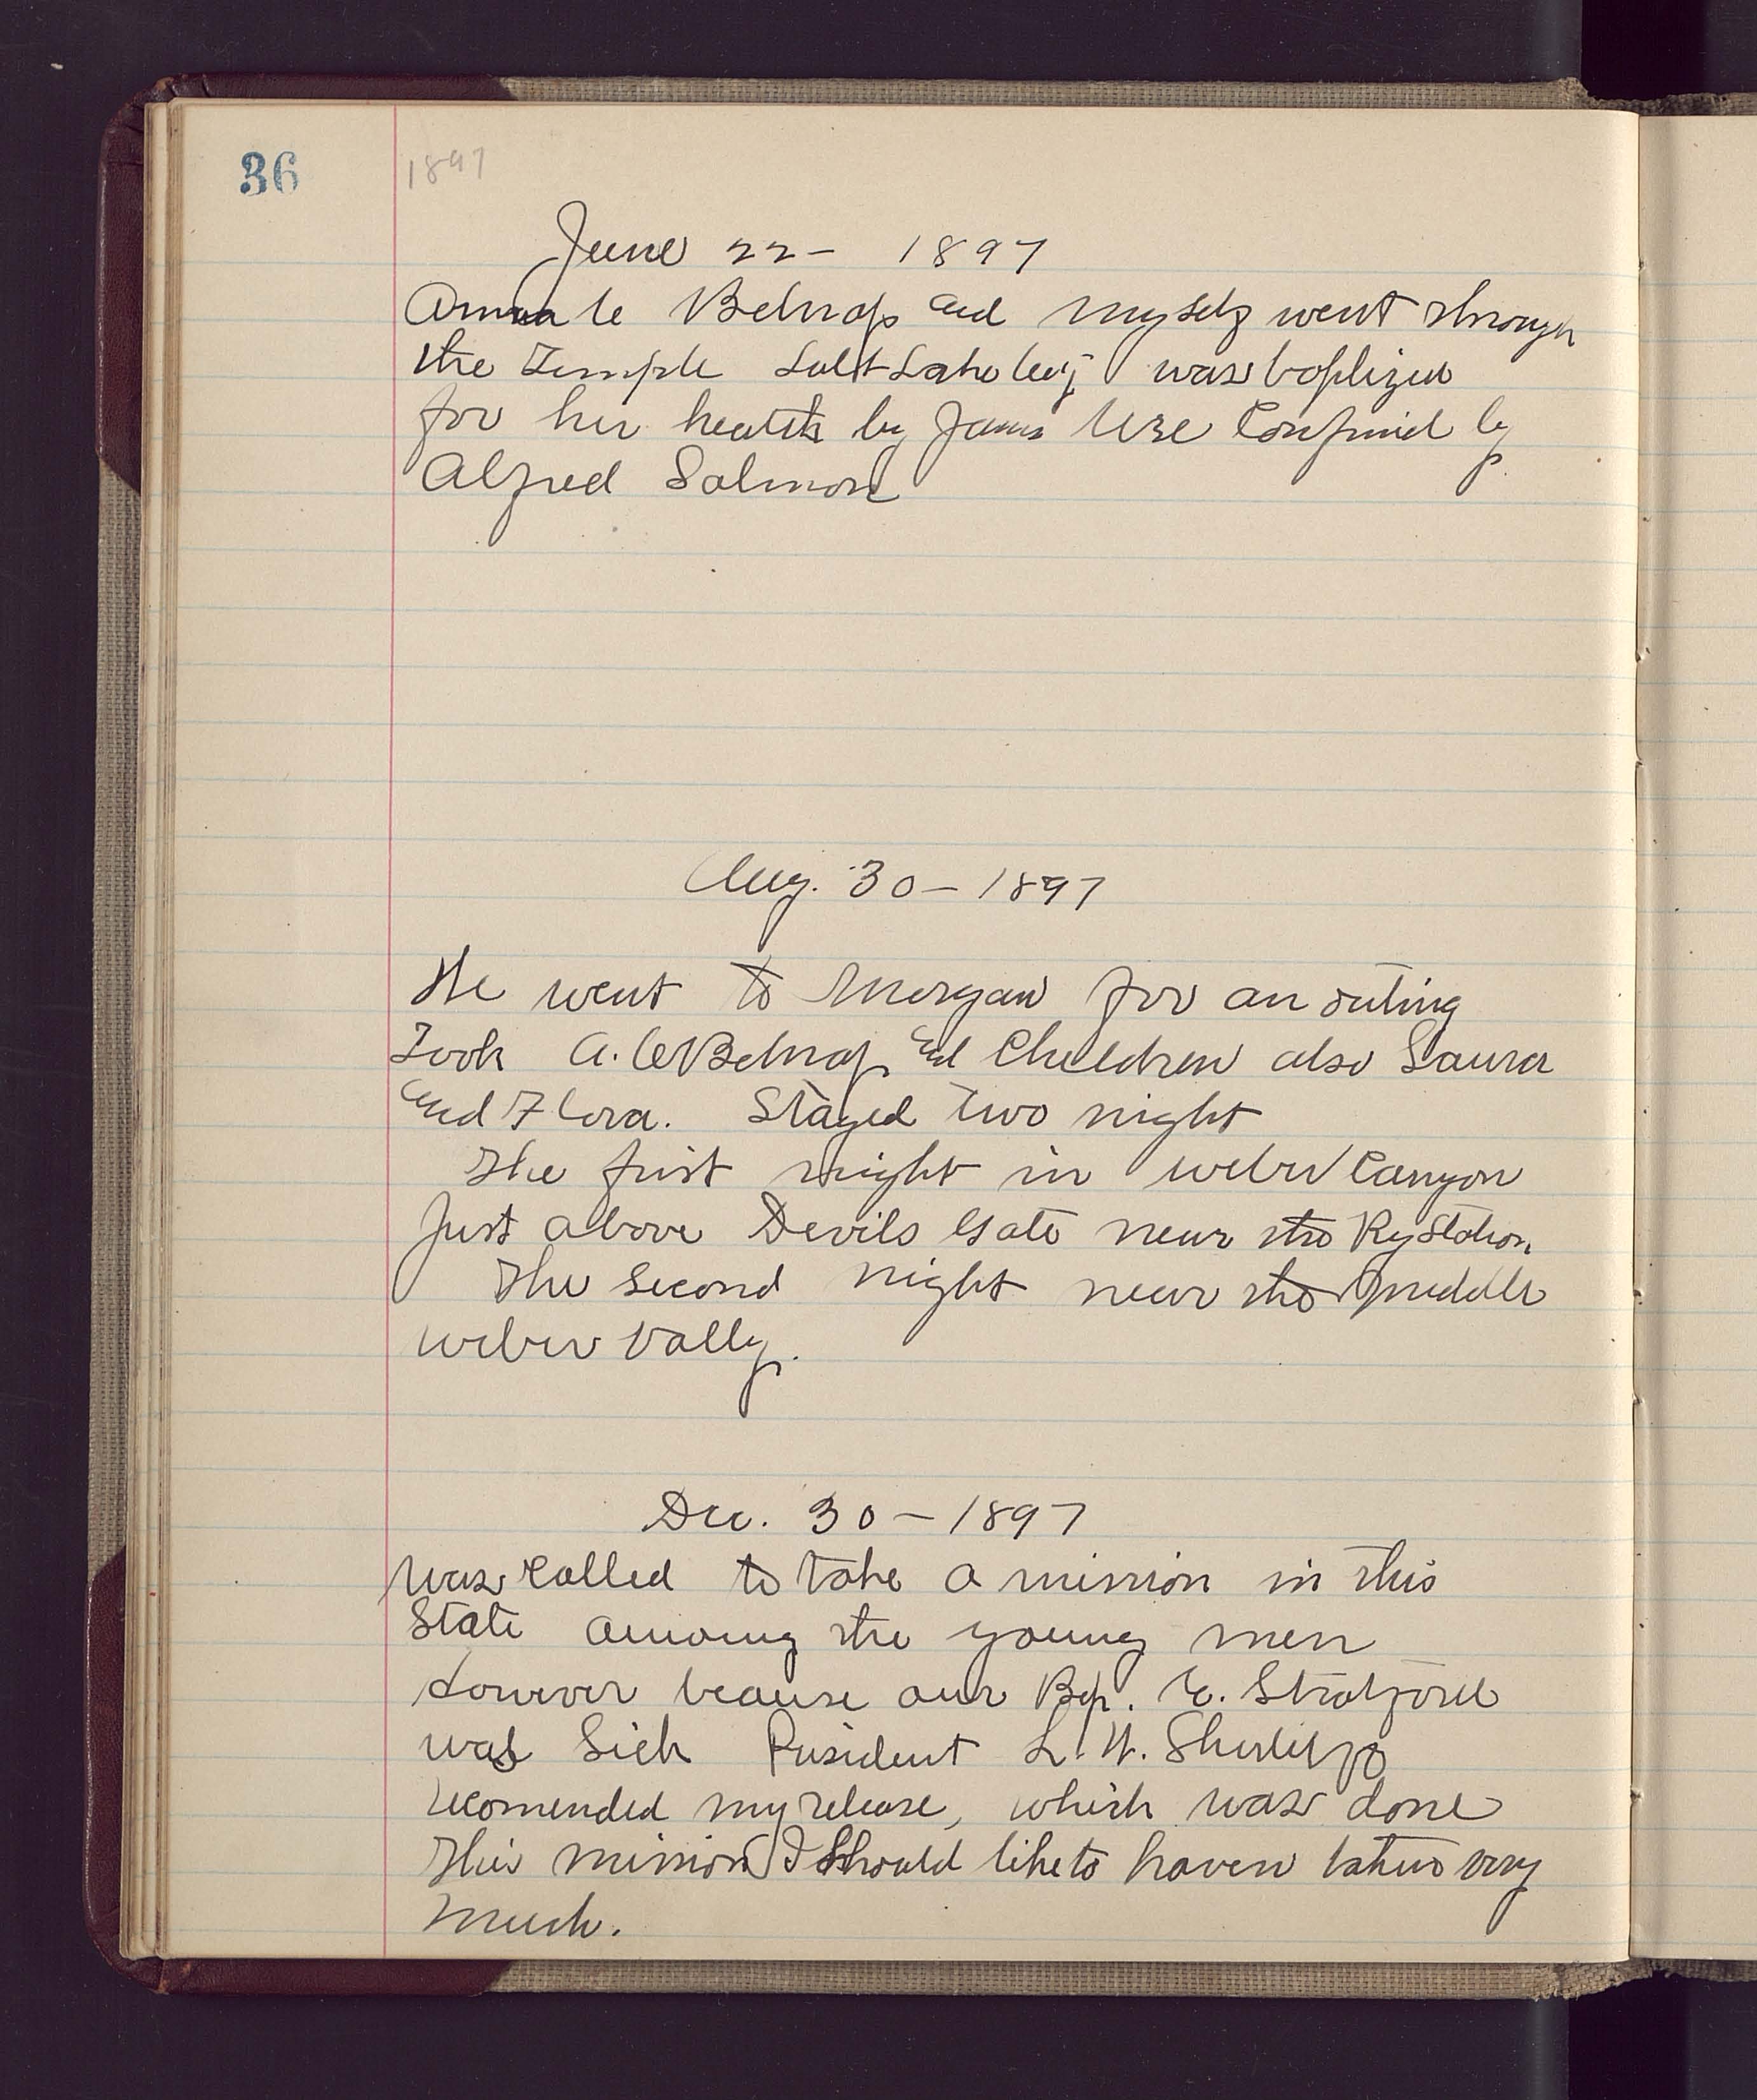 36
1897
June 22 - 1897
Belnap and myself went through
the Temple Salt Lake City was baptized
for her health by James Ure Confirmed by
Alfred Solmon
Aug. 30 - 1897
We went to Morgan for an outing
Took A. C Belnap and Children also Laura
and Flora. Stayed two night
The first night in weber Canyon
Just above Devils Gate near the Ry Station
The second night near the middle
weber Vally.
Dec. 30 - 1897
was called to take a mission in this
State among the young men
However because our Bp. E. Stratford
was Sick President L. W. Shurtliff
recomended my release, which was done
This mission I Should like to haven taken very
much.